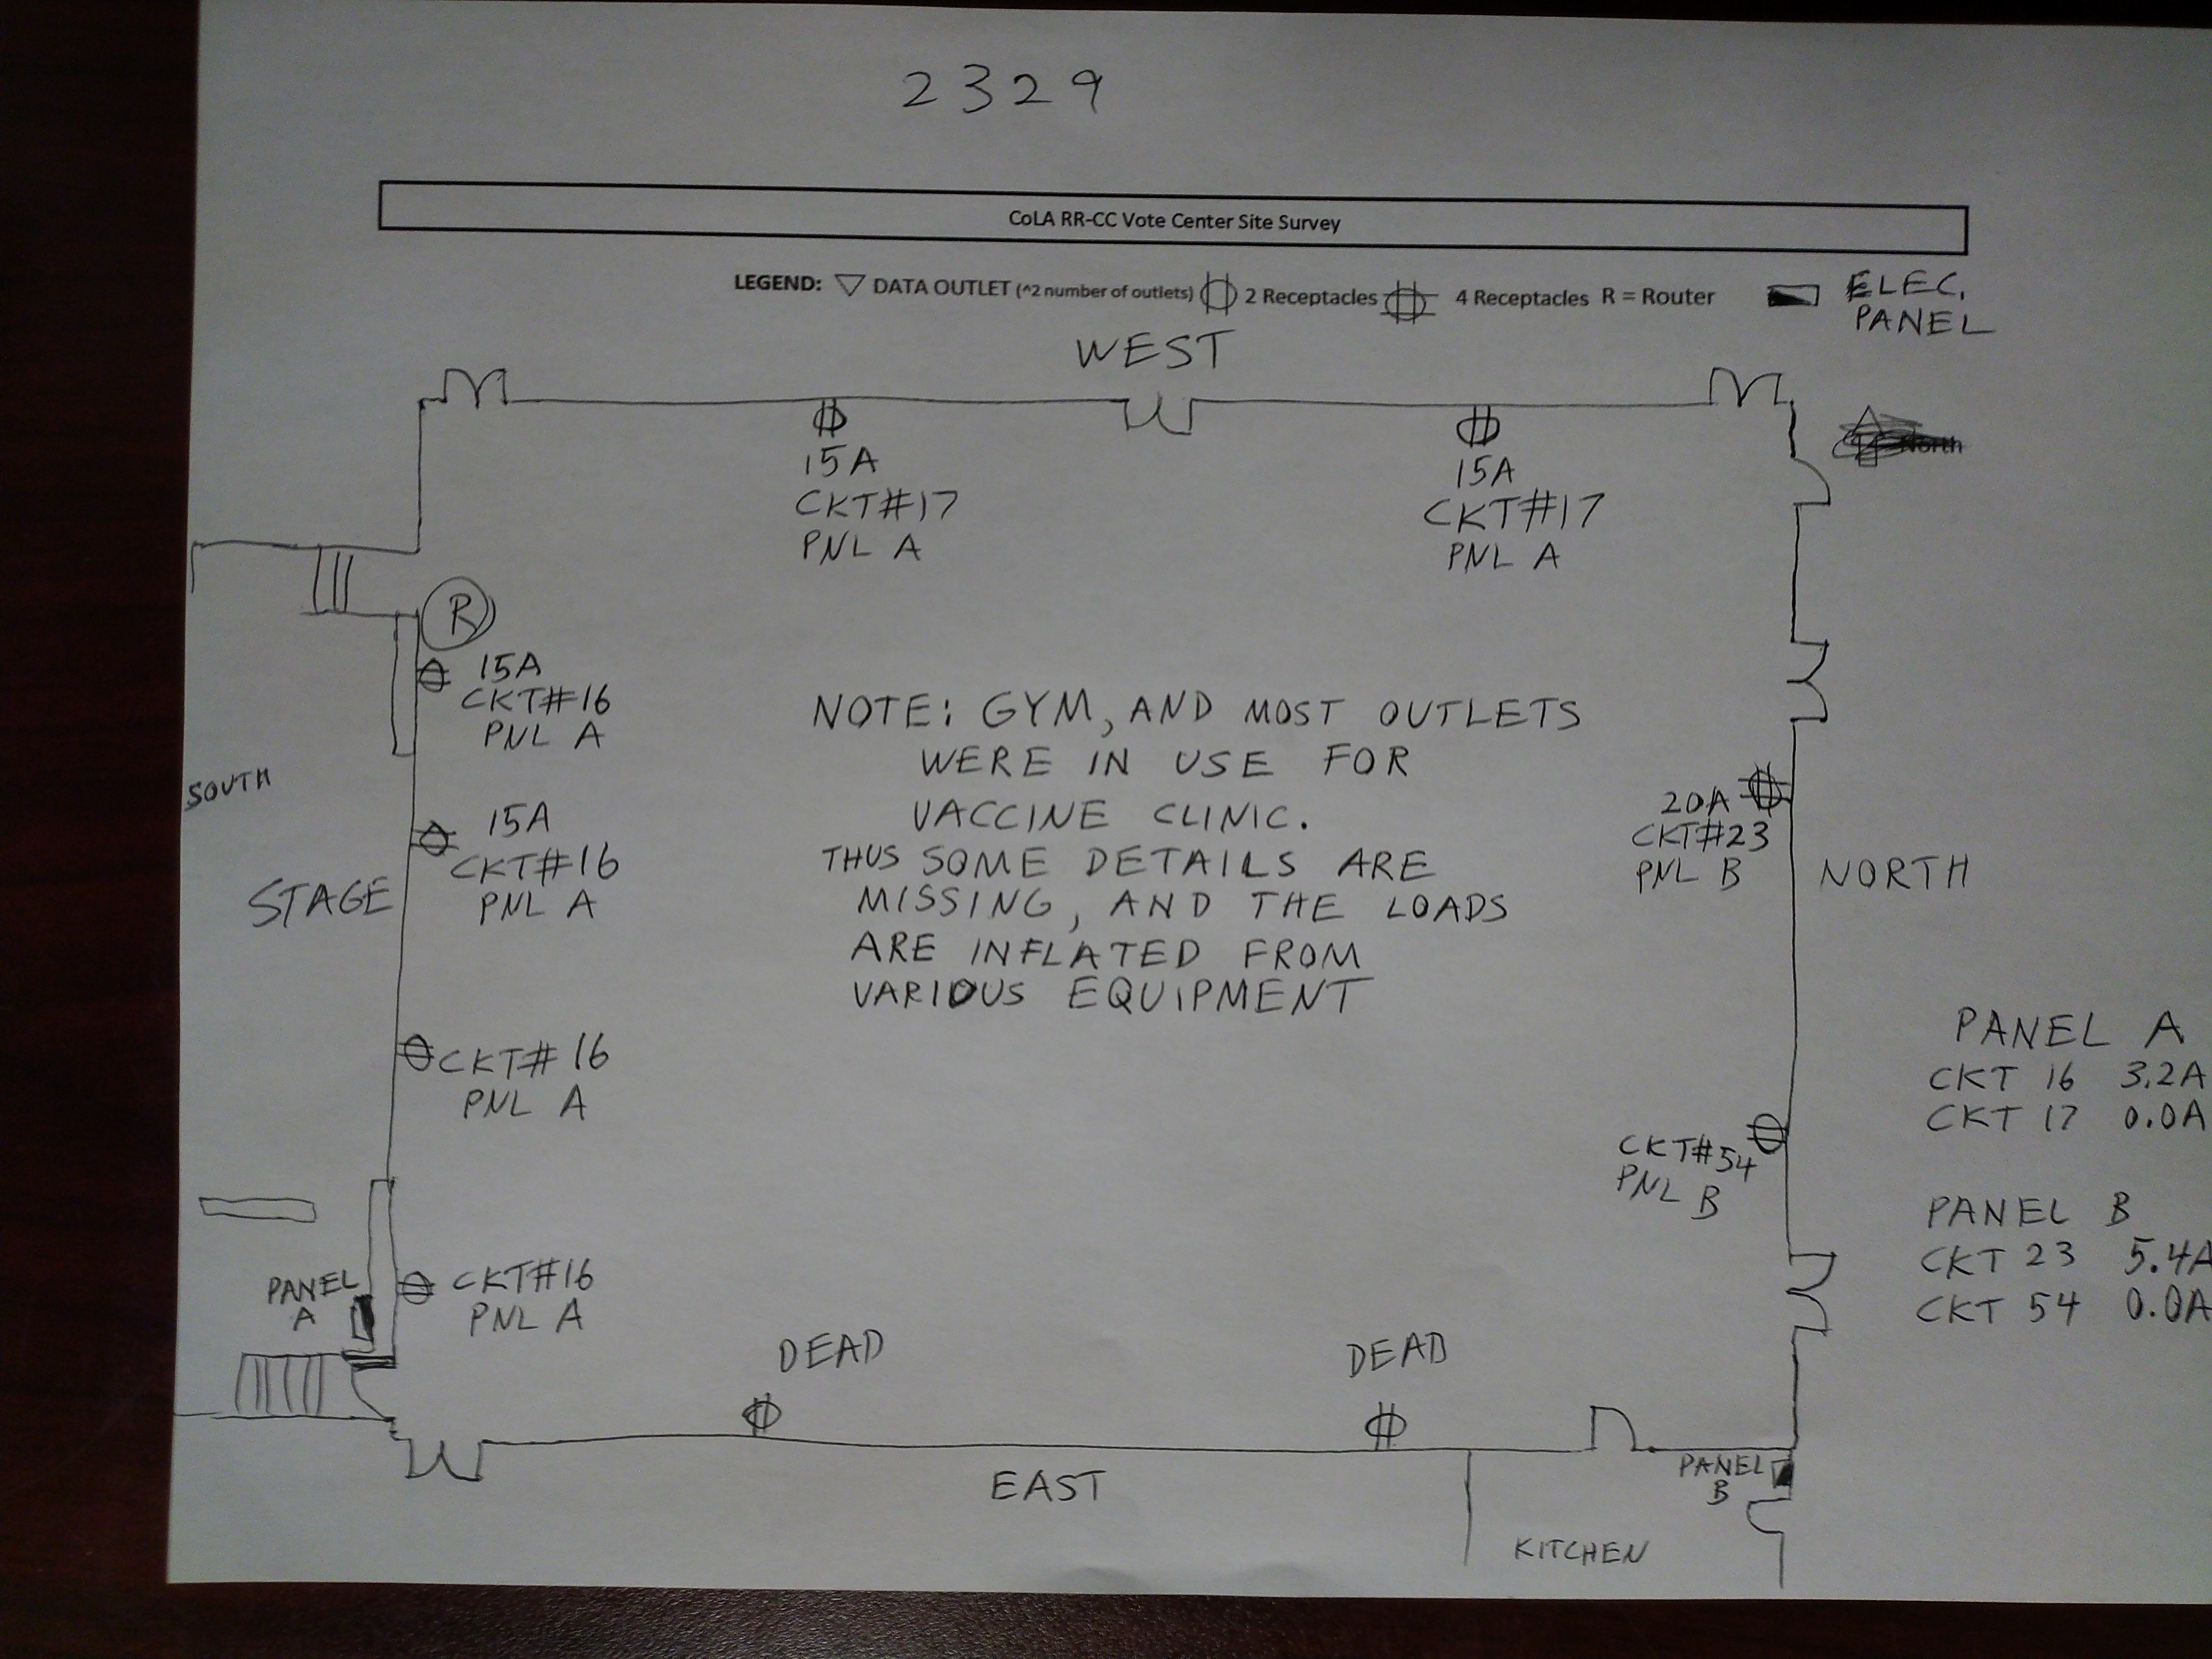 2329
CoLA RR-CC Vote Center Site Survey
LEGEND: DATA OUTLET (^2 number of outlets) 2 Receptacles 4 Receptacles R = Router
ELEC.
PANEL
WEST
North
15A
CKT#17
PNL A
15A
CKT#17
PNL A
R
15A
CKT#16
PNL A
SOUTH
15A
CKT#16
PNL A
STAGE
CKT#16
PNL A
PANEL
A
CKT#16
PNL A
NOTE: GYM, AND MOST OUTLETS
WERE IN USE FOR
VACCINE CLINIC.
THUS SOME DETAILS ARE
MISSING, AND THE LOADS
ARE INFLATED FROM
VARIOUS EQUIPMENT
20A
CKT#23
PNL B
NORTH
CKT#54
PNL B
PANEL A
CKT 16 3.2A
CKT 17 0.0A
PANEL B
CKT 23 5.4A
CKT 54 0.0A
DEAD
DEAD
EAST
PANEL
B
KITCHEN